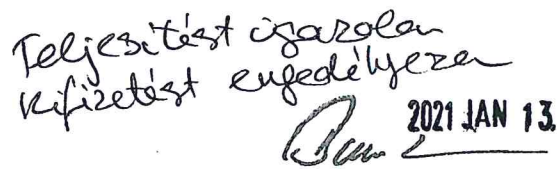 Teljesítést igazolom
Kifizetést engedélyezem
2021 JAN 13.